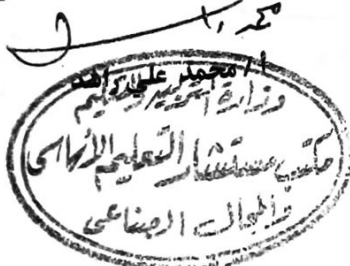 محمد
أ/ محمد علي زاهد
وزارة التربية والتعليم
مكتب مستشار التعليم الأساسي
والمجال الصناعي